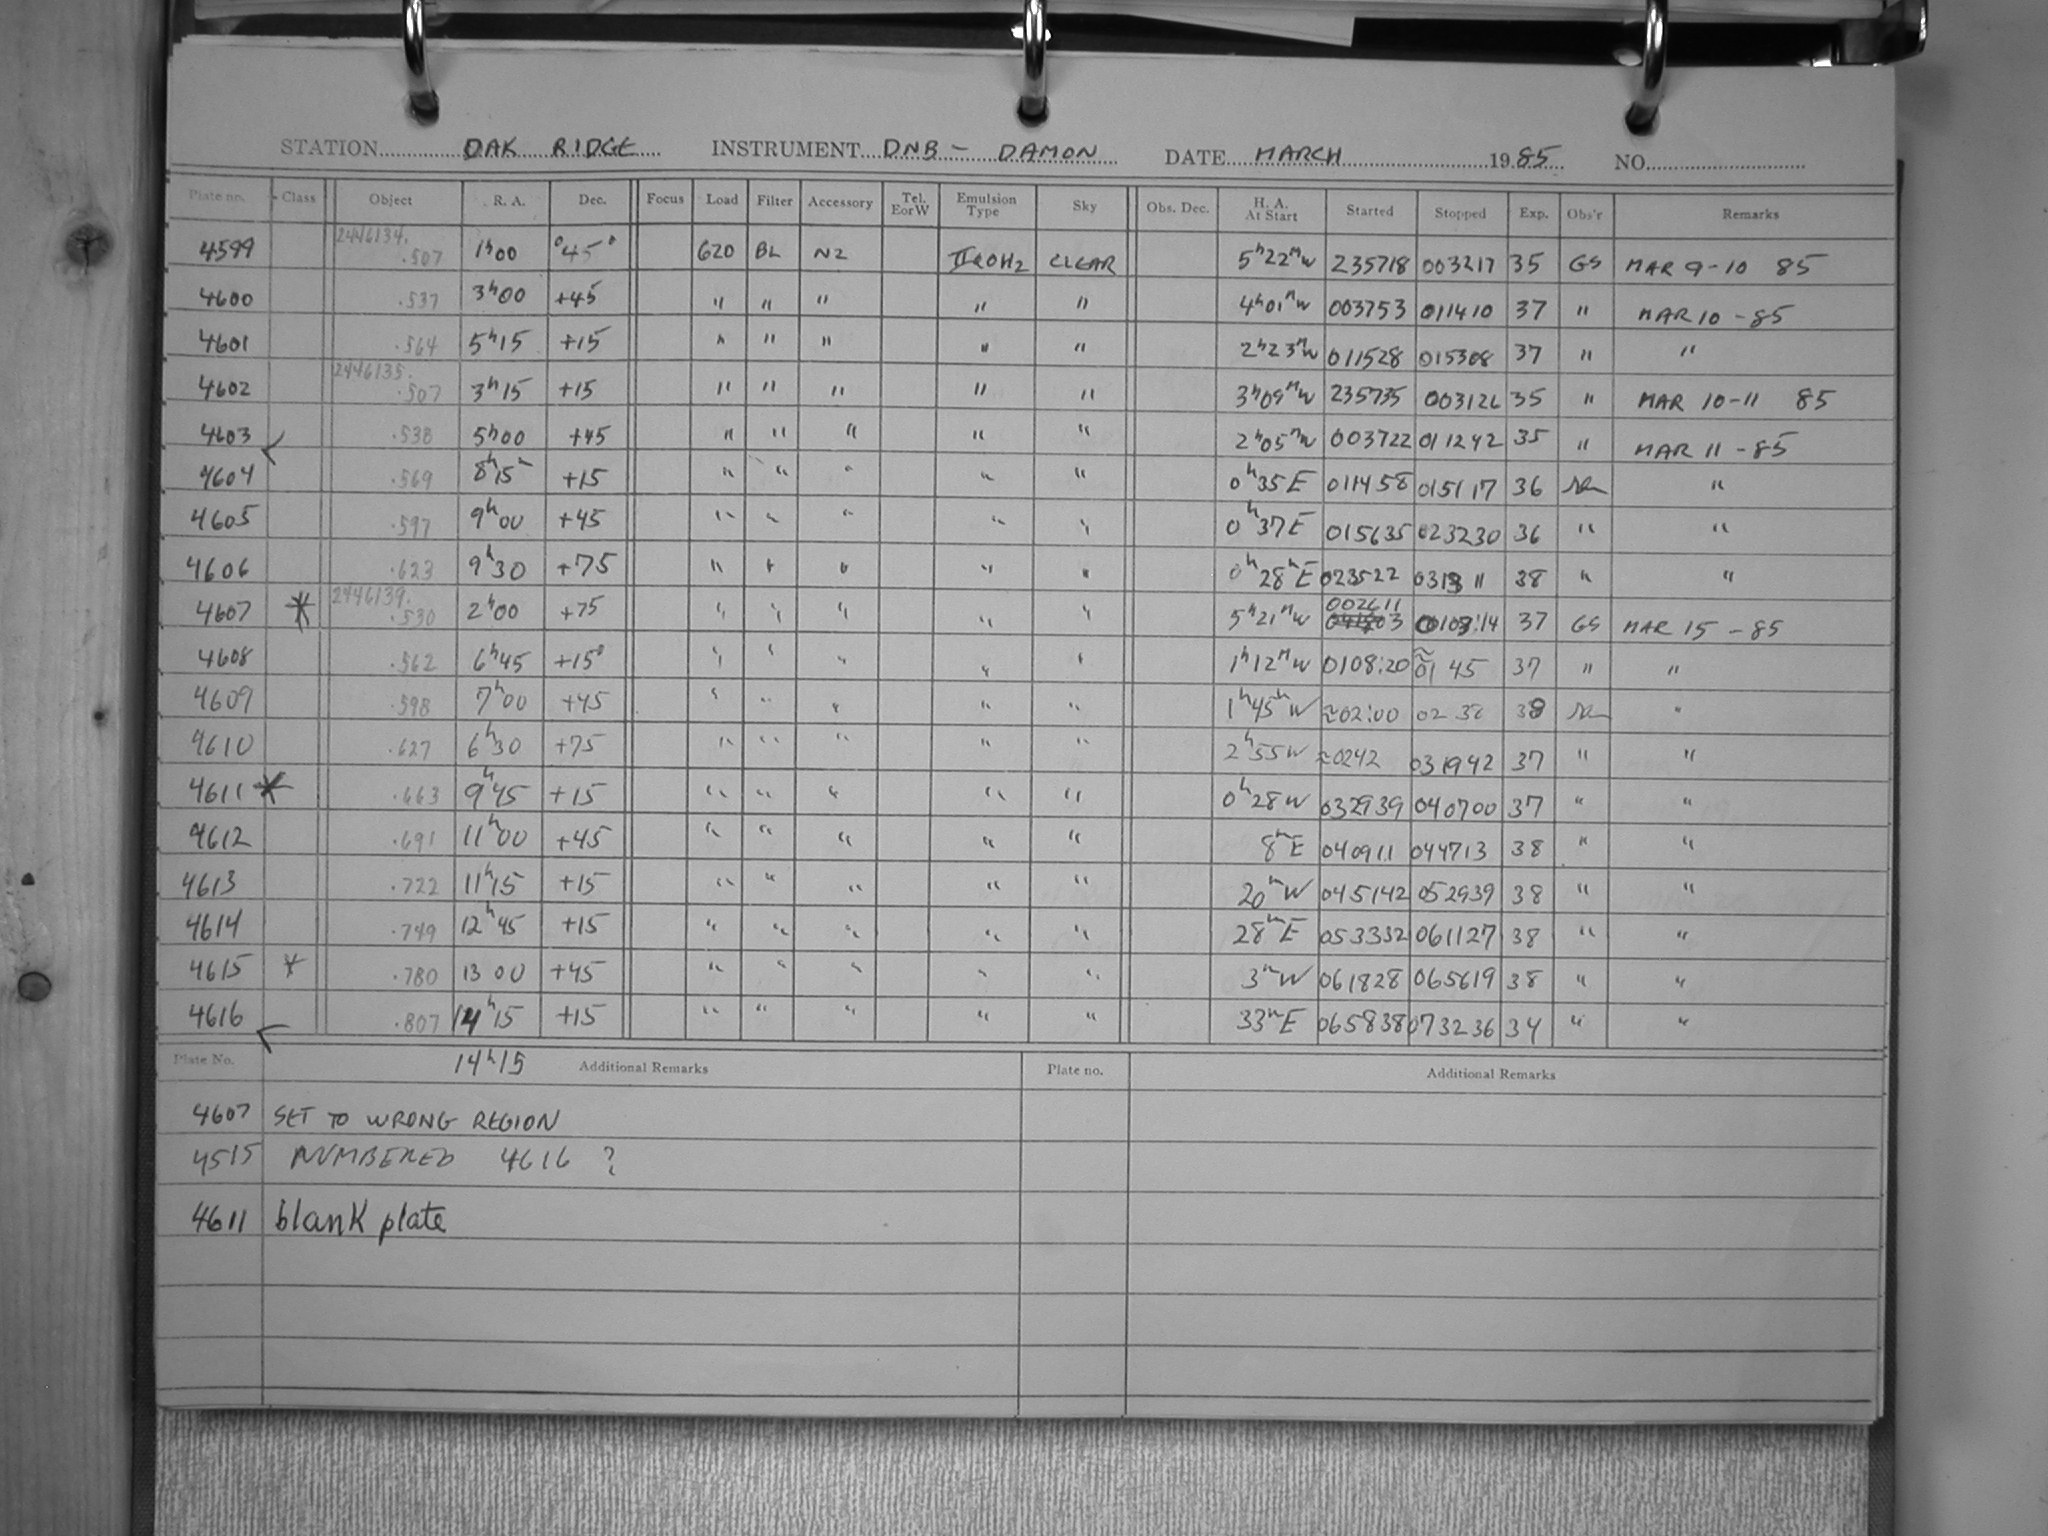 STATION OAK RIDGE INSTRUMENT DNB - DAMON DATE MARCH 1985 NO.
Plate no. Class Object R. A. Dec. Focus Load Filter Accessory Tel. EorW Emulsion Type Sky Obs. Dec. H. A. At Start Started Stopped Exp. Obs'r Remarks
4599 2446134.507 1h00 45° 620 BL N2 IIaOH2 CLEAR 5h22mW 235718 003217 35 GS MAR 9-10 85
4600 .537 3h00 +45 " " " " " 4h01mW 003753 011410 37 " MAR 10-85
4601 .564 5h15 +15 " " " " " 2h23mW 011528 015308 37 " "
4602 2446135.507 3h15 +15 " " " " " 3h09mW 235735 003126 35 " MAR 10-11 85
4603 .538 5h00 +45 " " " " " 2h05mW 003722 011242 35 " MAR 11-85
4604 .569 8h15 +15 " " " " " 0h35E 011458 015117 36 "
4605 .597 9h00 +45 " " " " " 0h37E 015635 023230 36 " "
4606 .623 9h30 +75 " " " " " 0h28mE 023522 031311 38 " "
4607 * 2446139.530 2h00 +75 " " " " " 5h21mW 002611 0103:14 37 GS MAR 15-85
4608 .562 6h45 +15° " " " " " 1h12mW 0108:20 ≈01 45 37 " "
4609 .598 7h00 +45 " " " " " 1h45mW ≈02:00 02 38 38 "
4610 .627 6h30 +75 " " " " " 2h55W ≈0242 031942 37 " "
4611 * .663 9h45 +15 " " " " " 0h28W 032939 040700 37 " "
4612 .691 11h00 +45 " " " " " 8mE 040911 044713 38 " "
4613 .722 11h15 +15 " " " " " 20mW 045142 052939 38 " "
4614 .749 12h45 +15 " " " " " 28mE 053332 061127 38 " "
4615 * .780 13 00 +45 " " " " " 3mW 061828 065619 38 " "
4616 .807 14h15 +15 " " " " " 33mE 065838 073236 34 " "
Plate No. 14h15 Additional Remarks Plate no. Additional Remarks
4607 SET TO WRONG REGION
4515 NUMBERED 4616 ?
4611 blank plate